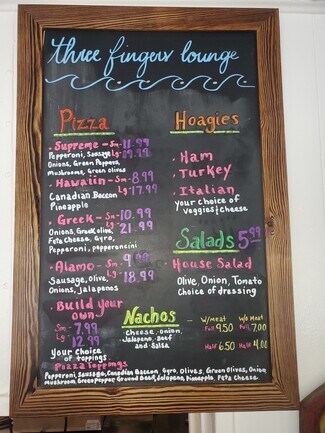 three fingers lounge
Pizza
• Supreme - Sm - 11.99
Pepperoni, Sausage, Lg - 19.99
Onions, Green Peppers,
Mushrooms, Green Olives
• Hawaiin - Sm - 8.99
Canadian Baccon Lg - 17.99
Pineapple
• Greek - Sm - 10.99
Onions, Greek olive, Lg - 21.99
Feta Cheese, Gyro,
Pepperoni, pepperoncini
• Alamo - Sm - 9.99
Sausage, Olive, Lg - 18.99
Onions, Jalapenos
• Build your
own -
Sm - 7.99
Lg 12.99
Your choice
of toppings
Hoagies
• Ham
• Turkey
• Italian
your choice of
veggies & cheese
Salads 5.99
House Salad
Olive, Onion, Tomato
Choice of dressing
Nachos
cheese, onion,
Jalapeno, Beef
and Salsa
W/meat W/o Meat
Full 9.50 Full 7.00
Half 6.50 Half 4.00
Pozza Toppings
Pepperoni, Sausage, Canadian Baccon, Gyro, Olives, Green Olives, Onion
Mushroom, Green Pepper, Ground Beef, Jalapeno, Pineapple, Feta Cheese